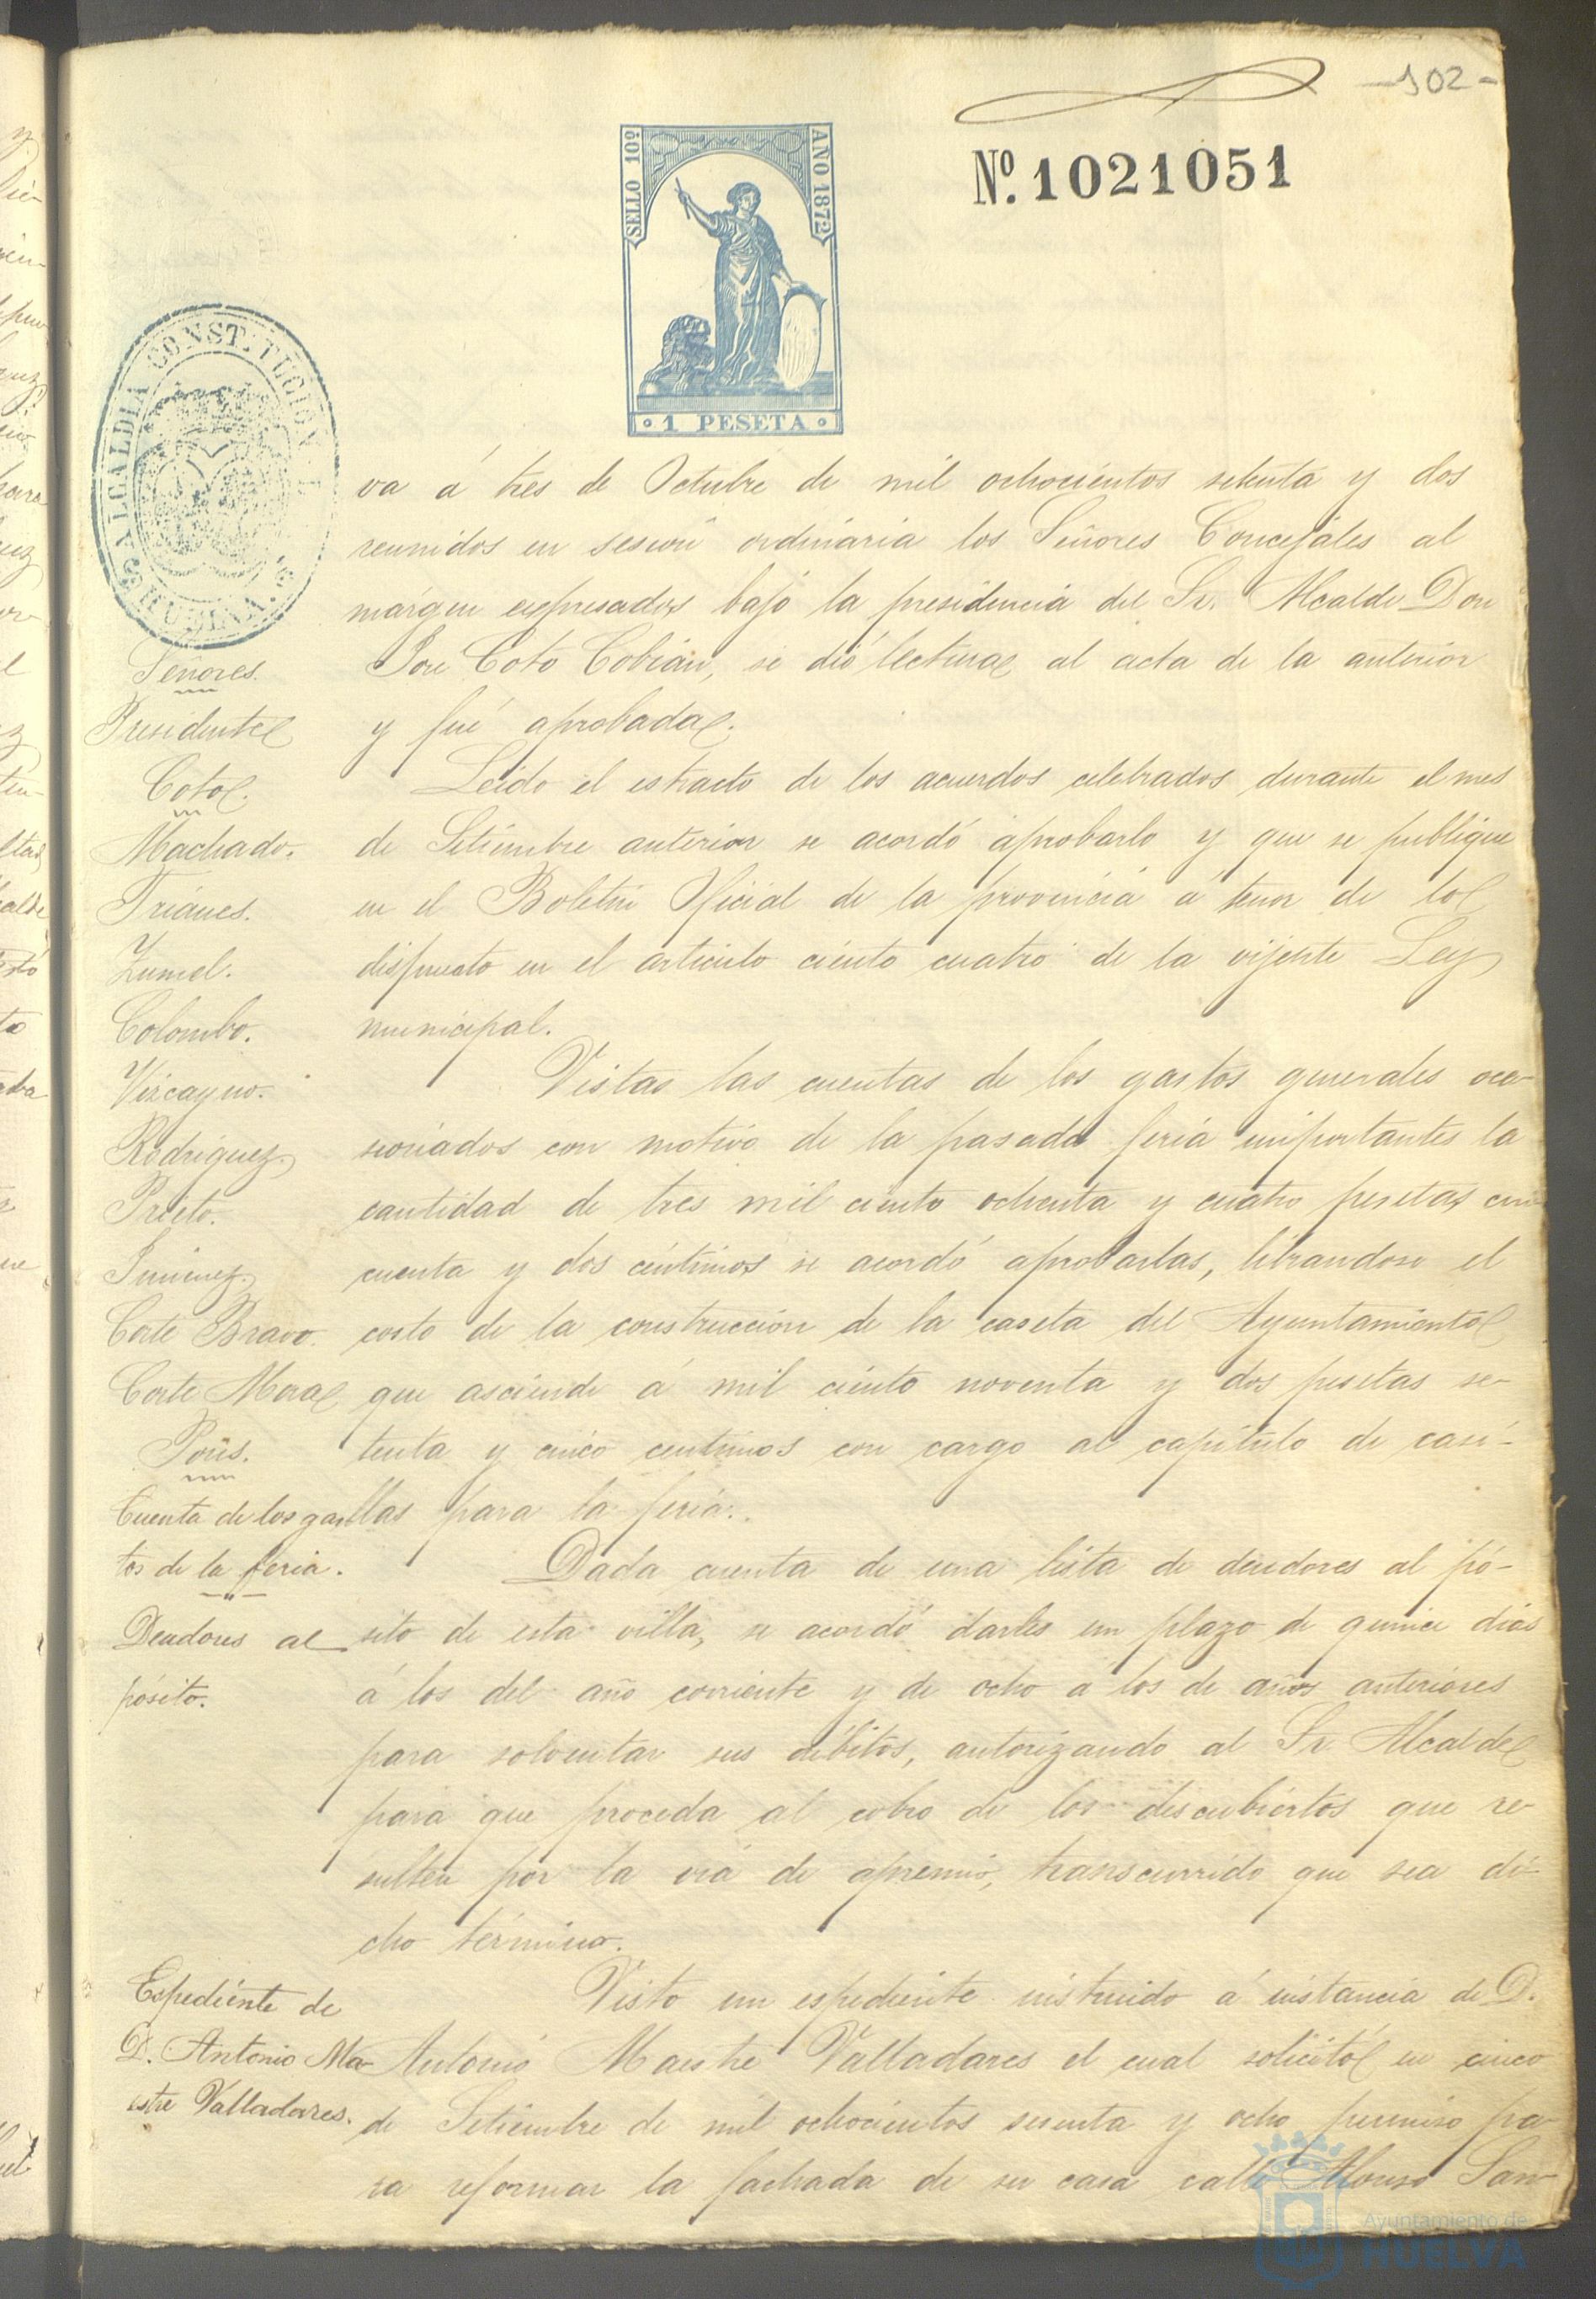 -102-
Nº. 1021051
SELLO 10º
AÑO 1872
1 PESETA
ALCALDIA CONSTITUCIONAL
HUELVA
va á tres de Octubre de mil ochocientos setenta y dos
reunidos en sesion ordinaria los Señores Concejales al
márgen espresados bajo la presidencia del Sr. Alcalde Don
José Coto Cobián, se dió lectura al acta de la anterior
y fué aprobada.
Leido el estracto de los acuerdos celebrados durante el mes
de Setiembre anterior se acordó aprobarlo y que se publique
en el Boletin Oficial de la provincia á tenor de lo
dispuesto en el articulo ciento cuatro de la vijente Ley
municipal.
Vistas las cuentas de los gastos generales oca-
sionados con motivo de la pasada feria importantes la
cantidad de tres mil ciento ochenta y cuatro pesetas cin
cuenta y dos céntimos se acordó aprobarlas, librandose el
costo de la construccion de la caseta del Ayuntamiento
que asciende á mil ciento noventa y dos pesetas se-
tenta y cinco centimos con cargo al capítulo de casi-
llas para la feria.
Dada cuenta de una lista de deudores al pó-
sito de esta villa, se acordó darles un plazo de quince dias
á los del año corriente y de ocho á los de años anteriores
para solventar sus débitos, autorizando al Sr. Alcalde
para que proceda al cobro de los descubiertos que re-
sulten por la via de apremio, transcurrido que sea di-
cho término.
Visto un espediente instruido á instancia de D.
Antonio Maestre Valladares el cual solicitó en cinco
de Setiembre de mil ochocientos sesenta y ocho permiso pa-
ra reformar la fachada de su casa calle Alonso San-
Señores.
Presidente
Coto.
Machado.
Triánes.
Zumel.
Colombo.
Vizcayno.
Rodriguez.
Prieto.
Jimenez.
Corte Bravo.
Corte Mora
Pons.
Cuenta de los gas
tos de la feria.
Deudores al
pósito.
Espediente de
D. Antonio Ma-
estre Valladares.
Ayuntamiento de
HUELVA